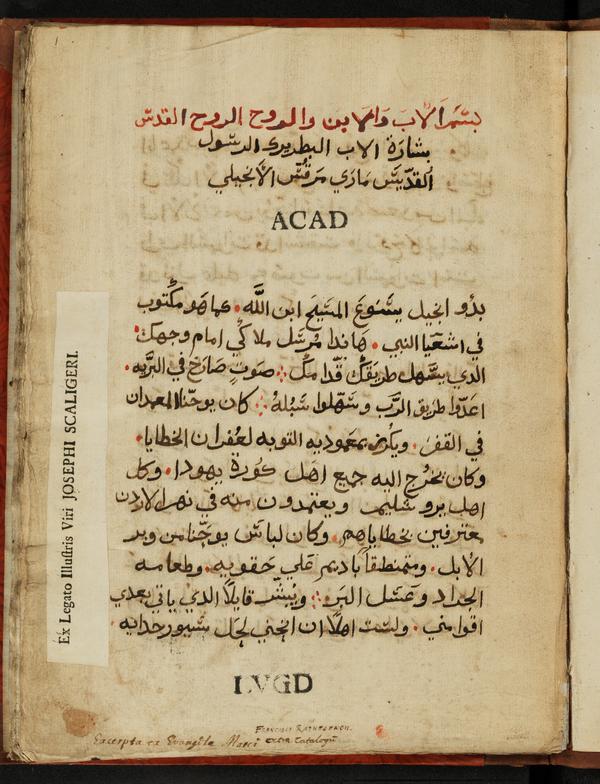 بسم الاب والابن والروح الروح القدس
بشارة الاب البطريرى الرسول
القديس ماري مرقس الانجيلي
ACAD
بدؤ انجيل يسوع المسيح ابن الله. كما هو مكتوب
في اشعيا النبي. هاندا مرسل ملاكي امام وجهك.
الدي يسهل طريقك قدامك: صوت صارخ في البريه.
اعدوا طريق الرب وسهلوا سبله: كان يوحنا المعمدان
في القفر. ويكرز بمعموديه التوبه لغفران الخطايا.
وكان يخرج اليه جميع اهل كورة يهودا. وكل
اهل يروشليم ويعتمدون منه في نهر الاردن
معترفين بخطاياهم. وكان لباس يوحنا من وبر
الابل. ومتمنطقا باديم علي حقويه. وطعامه
الجراد وعسل البر: ويبشر قايلا الدي ياتي بعدي
اقوا مني. ولست اهلا ان انحني لحل سيور حدايه
LVGD
Ex Legato Illustris Viri JOSEPHI SCALIGERI.
Excerpta ex Evangelio Marci